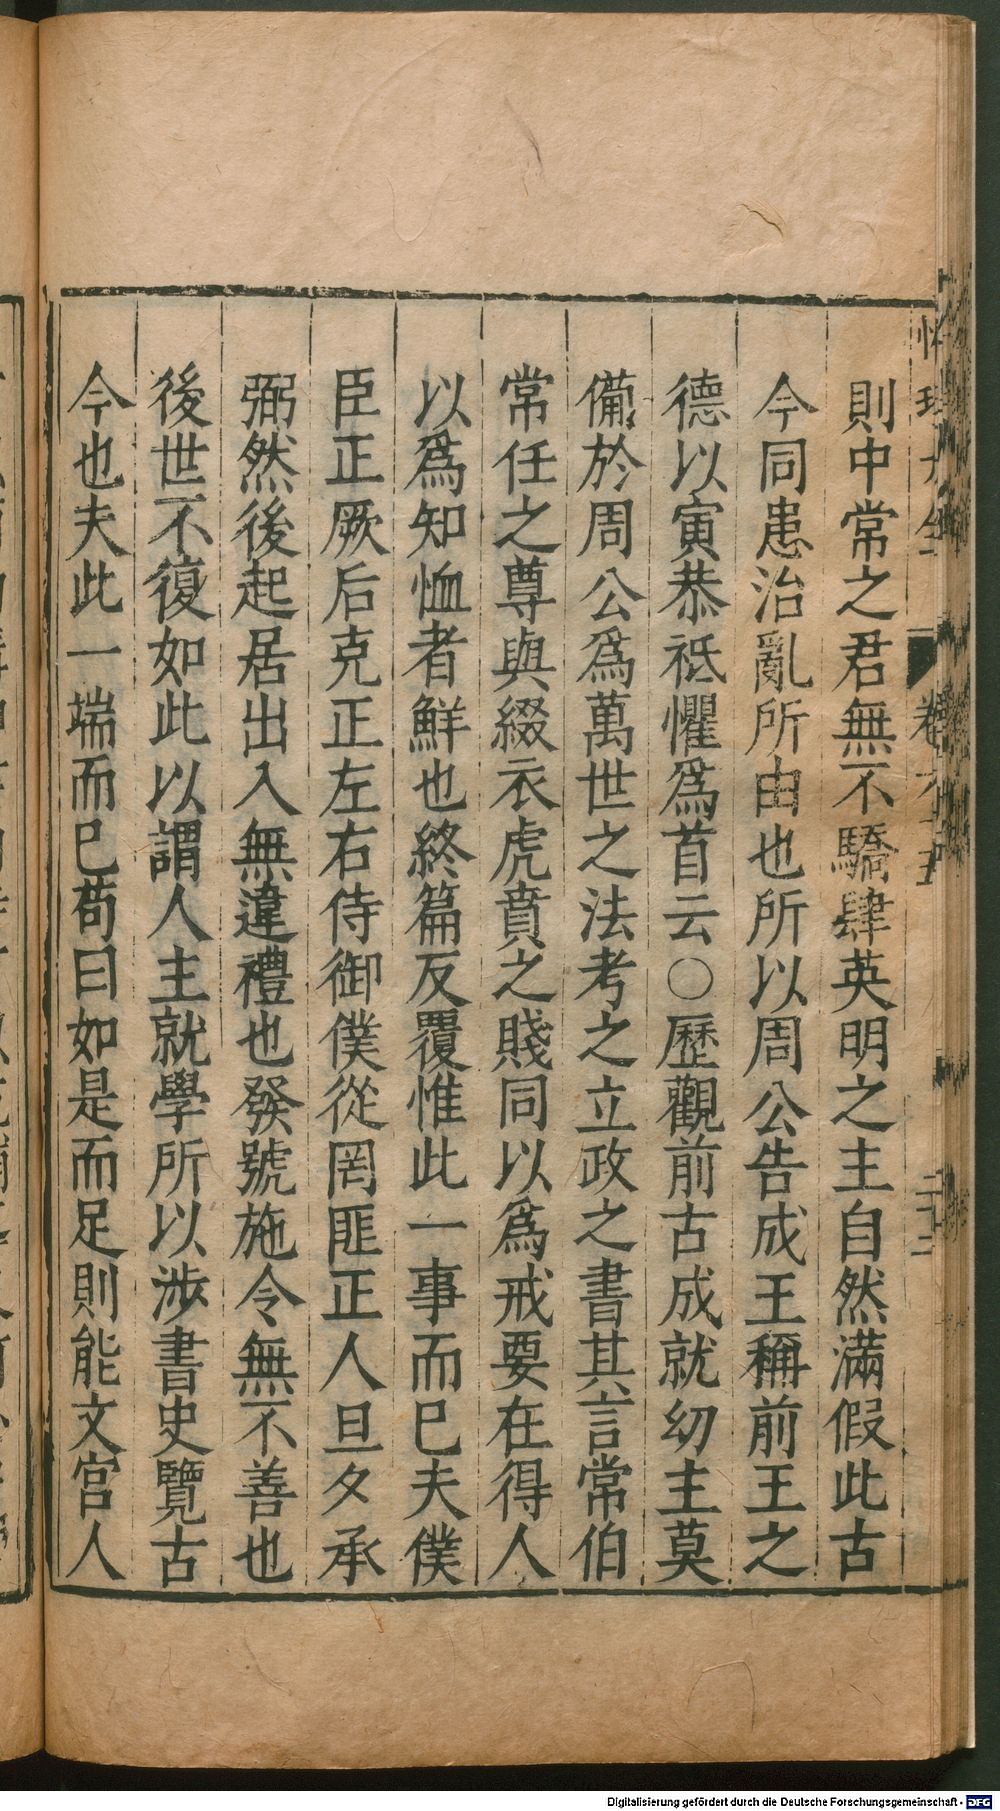 則中常之君無不驕肆英明之主自然滿假此古
今同患治亂所由也所以周公告成王稱前王之
德以寅恭祗懼爲首云○歷觀前古成就幼主莫
備於周公爲萬世之法考之立政之書其言常伯
常任之尊與綴衣虎賁之賤同以爲戒要在得人
以爲知恤者鮮也終篇反覆惟此一事而已夫僕
臣正厥后克正左右侍御僕從罔匪正人旦夕承
弼然後起居出入無違禮也發號施令無不善也
後世不復如此以謂人主就學所以涉書史覽古
今也夫此一端而已苟曰如是而足則能文宮人
Digitalisierung gefördert durch die Deutsche Forschungsgemeinschaft - DFG